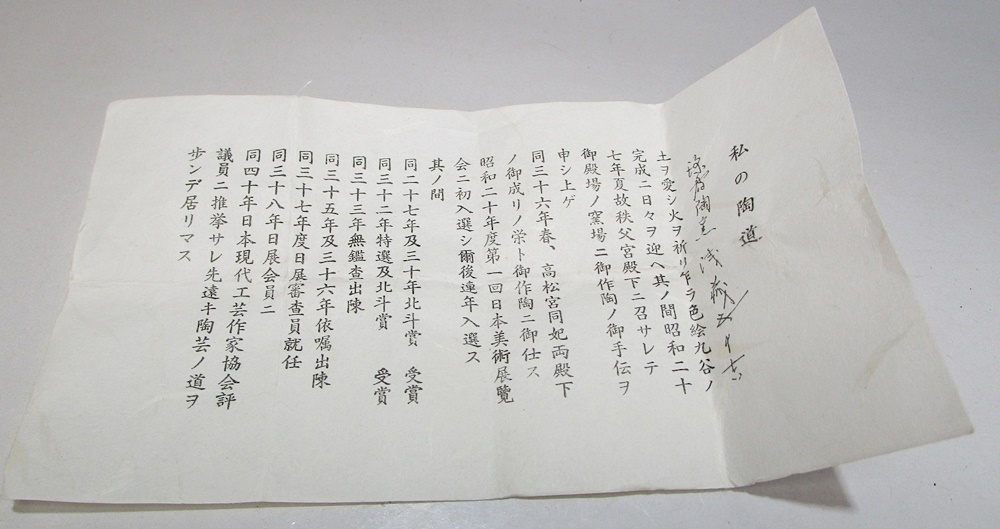 私の陶道
陶窯 浅蔵五十吉
土ヲ愛シ火ヲ祈リ乍ラ色絵九谷ノ
完成ニ日々ヲ迎ヘ其ノ間昭和二十
七年夏故秩父宮殿下ニ召サレテ
御殿場ノ窯場ニ御作陶ノ御手伝ヲ
申シ上ゲ
同三十六年春、高松宮同妃両殿下
ノ御成リノ栄ト御作陶ニ御仕ス
昭和二十年度第一回日本美術展覧
会ニ初入選シ爾後連年入選ス
其ノ間
同二十七年及三十年北斗賞 受賞
同三十二年特選及北斗賞 受賞
同三十三年無鑑査出陳
同三十五年及三十六年依嘱出陳
同三十七年度日展審査員就任
同三十八年日展会員ニ
同四十年日本現代工芸作家協会評
議員ニ推挙サレ先遠キ陶芸ノ道ヲ
歩ンデ居リマス